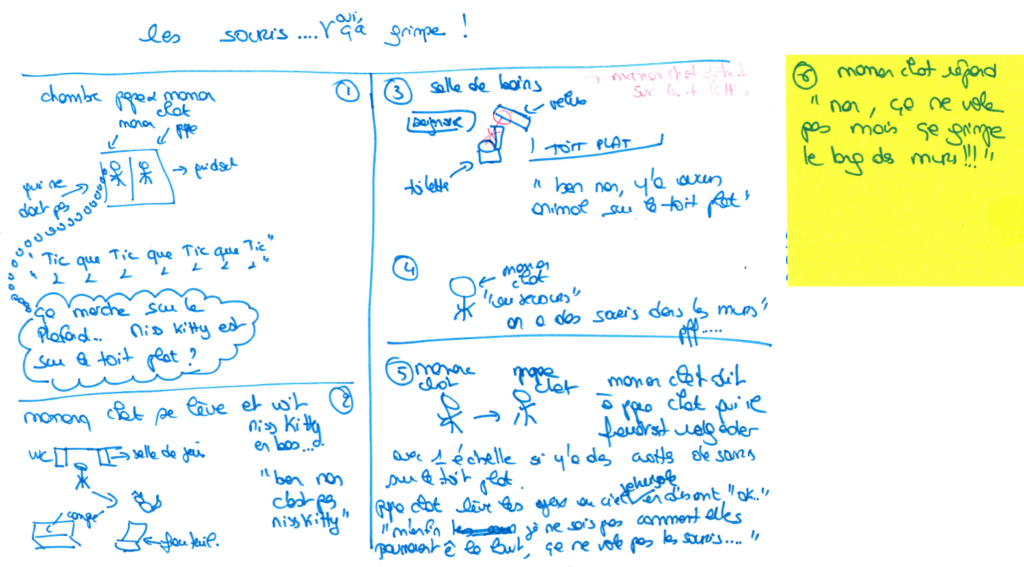 les souris.... oui ça grimpe !
①
chambre papa & maman
chat
maman
papa
qui ne
dort pas
"Tic que Tic que Tic que Tic"
ça marche sur le
plafond... Miss Kitty est
sur le toit plat ?
②
maman chat se lève et voit
miss Kitty
en bas...
WC
salle de jeu
canapé
fauteuil
"ben non
c'est pas
miss Kitty"
③ salle de bains
maman chat
sur la toilette
velux
baignoire
toilette
TOIT PLAT
"ben non, y'a aucun
animal sur le toit plat"
④
maman
chat
"au secours"
on a des souris dans les murs"
pff.....
⑤ maman
chat
papa
chat
maman chat dit
à papa chat qu'il
faudrait regarder
avec 1 échelle si y'a des crottes de souris
sur le toit plat.
papa chat lève les yeux au ciel en disant "ok.."
"m'enfin je ne sais pas comment elles
pourraient là haut, ça ne vole pas les souris...."
⑥ maman chat répond
"non, ça ne vole
pas mais ça grimpe
le long des murs!!!"